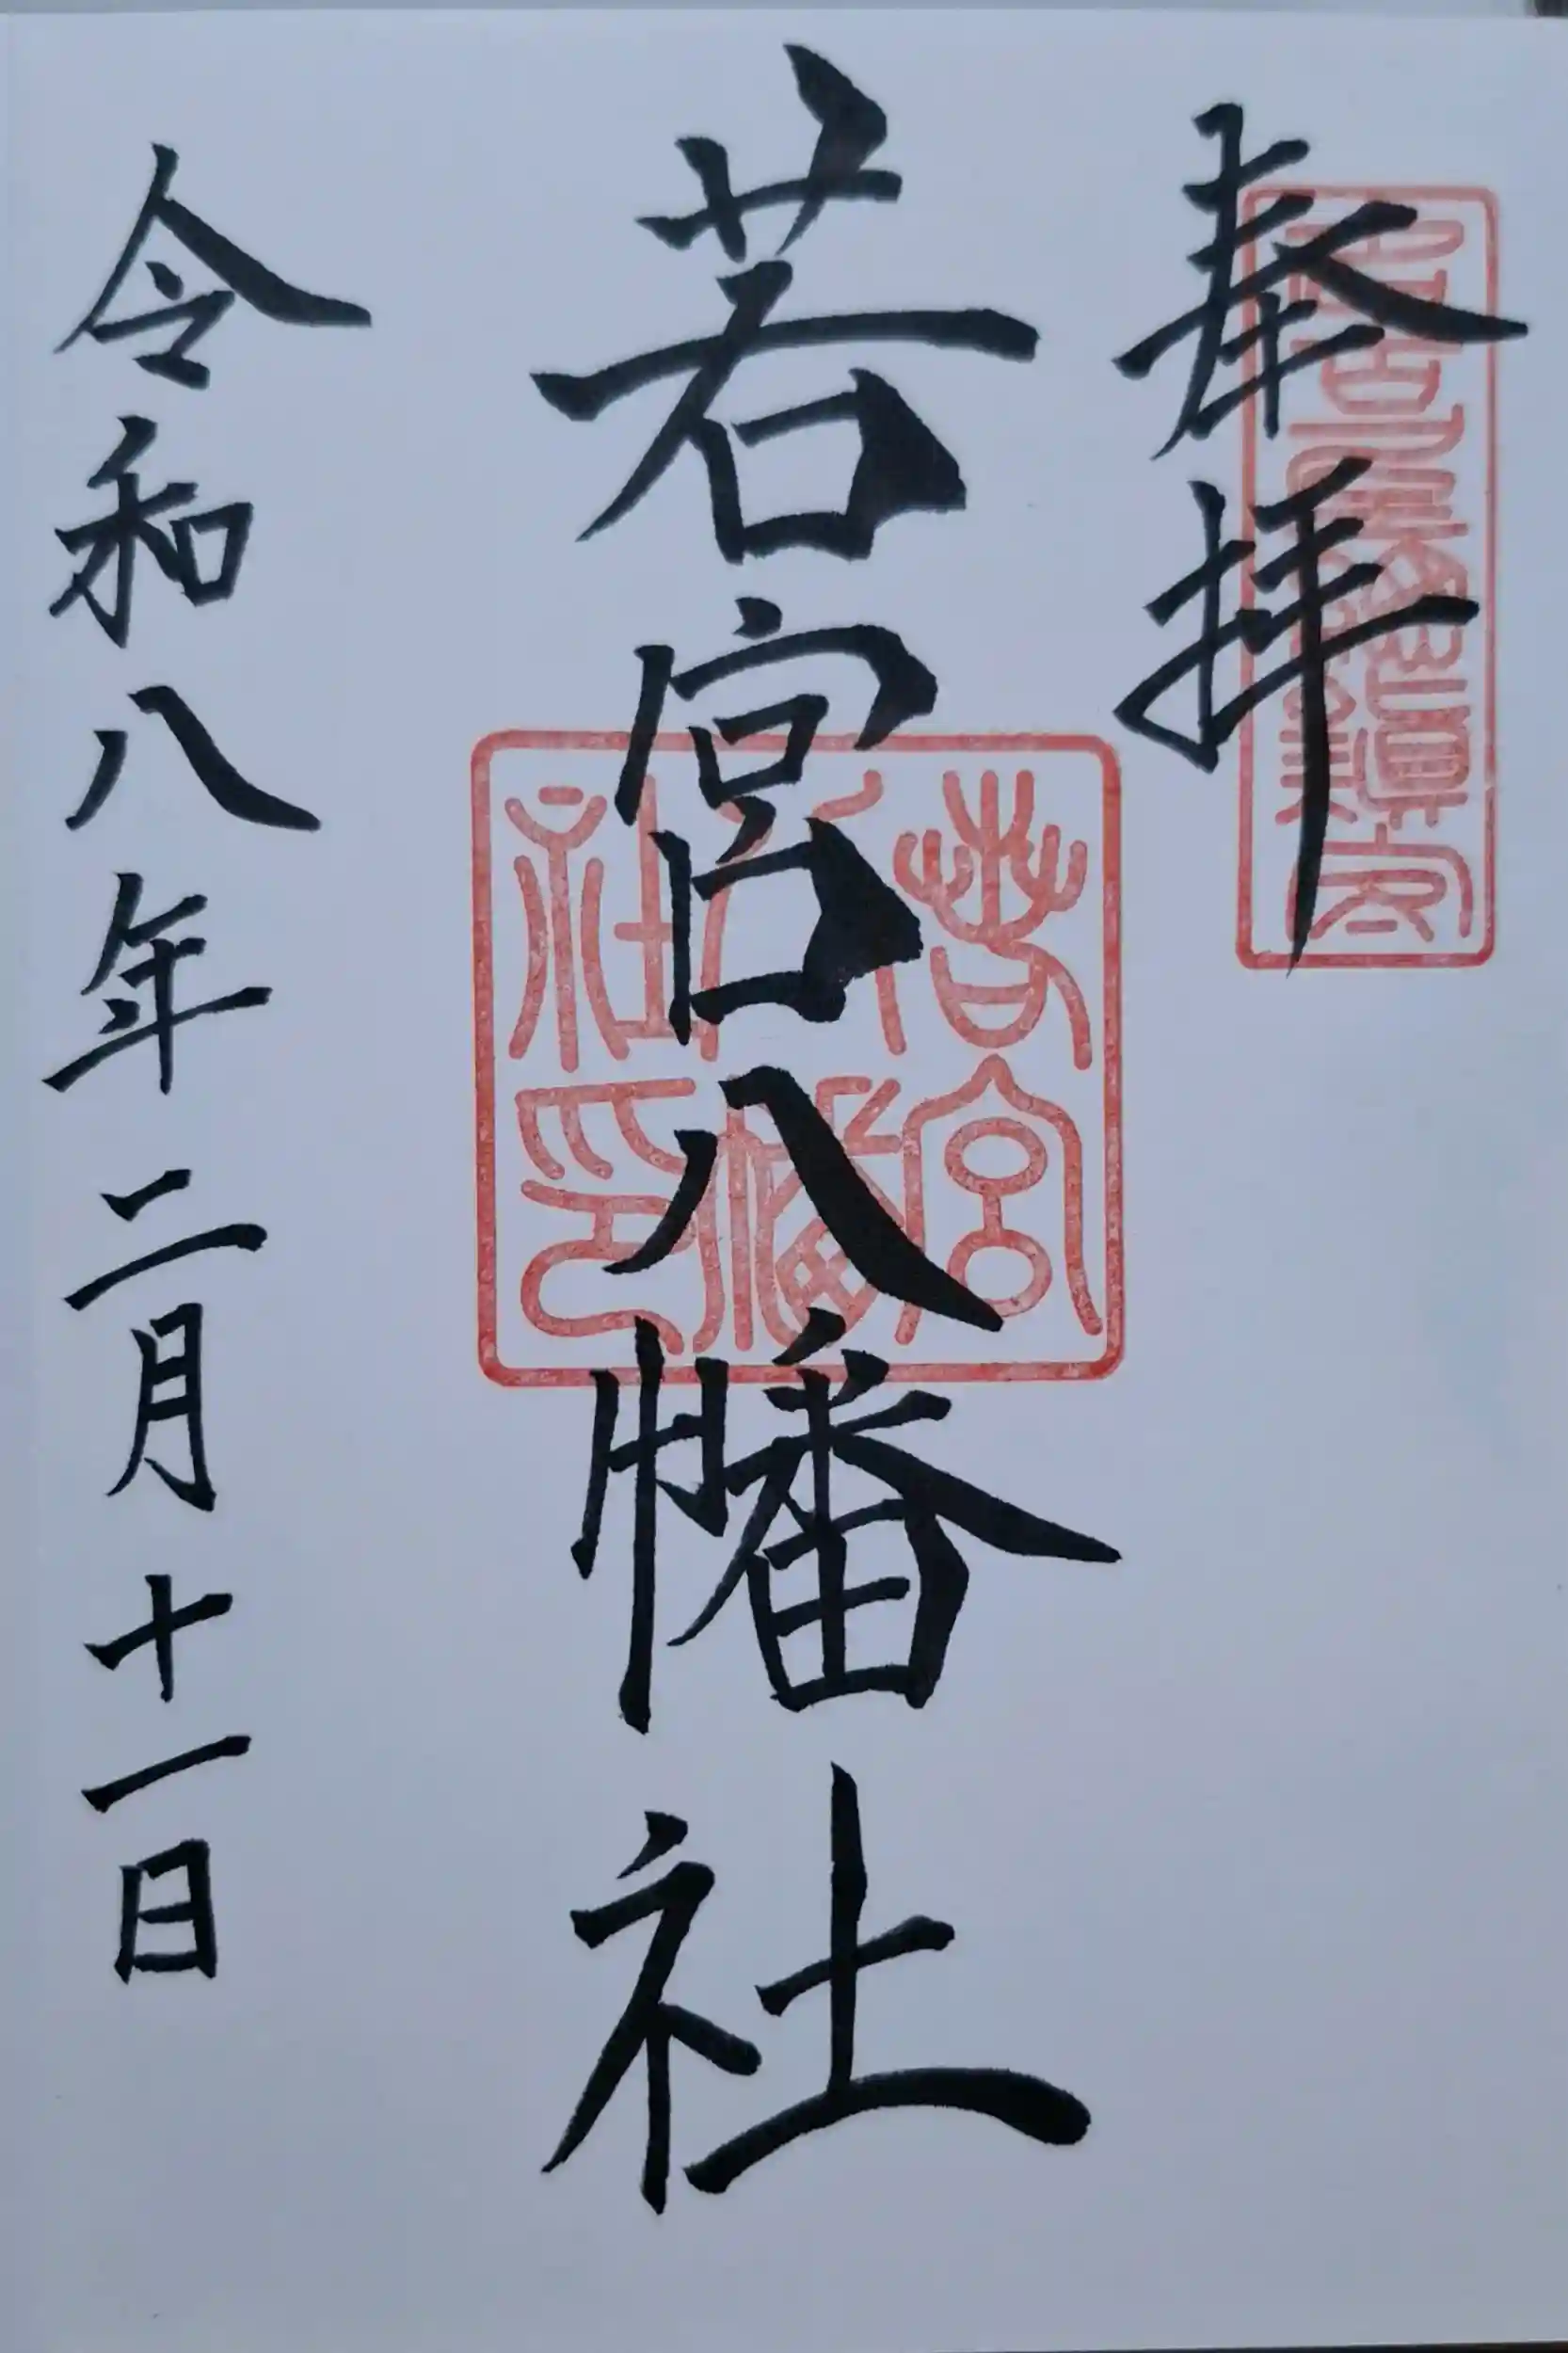 奉拝
若宮八幡社
若宮八幡社印
令和八年二月十一日